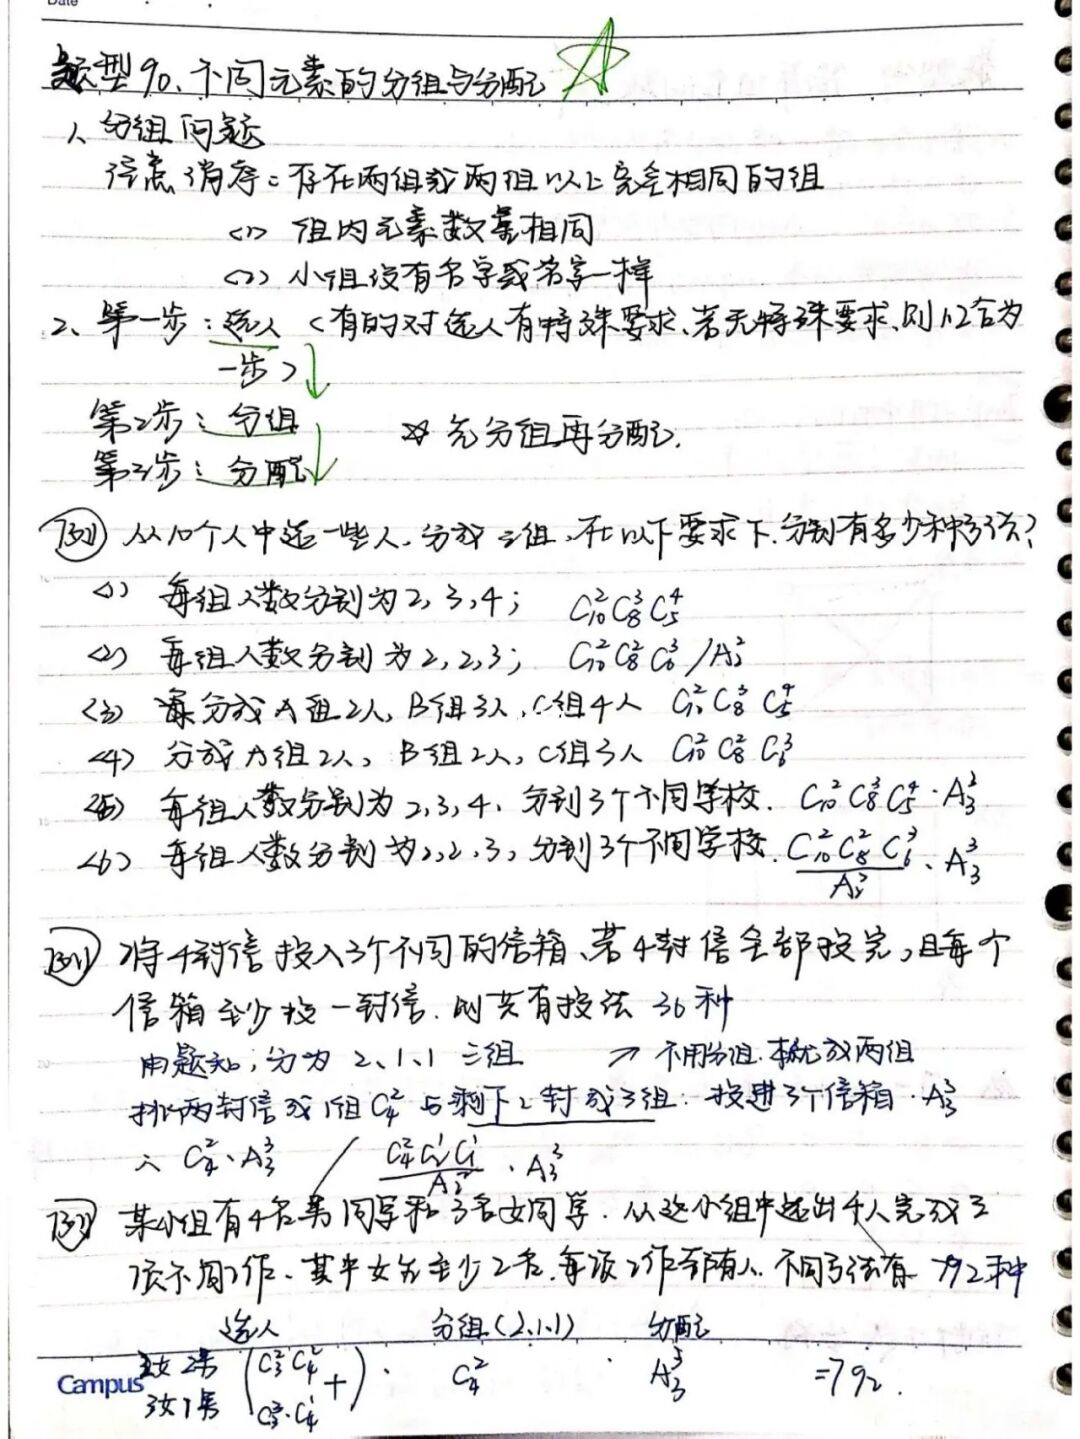 Date
题型90、不同元素的分组与分配
1、分组问题
注意消序：存在两组或两组以上完全相同的组
<1> 组内元素数量相同
<2> 小组没有名字或名字一样
2、第一步：选人 <有的对选人有特殊要求、若无特殊要求、则1、2合为
一步>
第2步：分组 ※ 先分组再分配.
第3步：分配
例 从10个人中选一些人，分成三组，在以下要求下，分别有多少种方法？
<1> 每组人数分别为2, 3, 4； C₁₀² C₈³ C₅⁴
<2> 每组人数分别为2, 2, 3； C₁₀² C₈² C₆³ /A₂²
<3> 分成A组2人, B组3人, C组4人 C₁₀² C₈³ C₅⁴
<4> 分成A组2人, B组2人, C组3人 C₁₀² C₈² C₆³
<5> 每组人数分别为2, 3, 4, 分到3个不同学校. C₁₀² C₈³ C₅⁴ · A₃³
<6> 每组人数分别为2, 2, 3, 分到3个不同学校. C₁₀² C₈² C₆³ / A₂² · A₃³
例 将4封信投入3个不同的信箱、若4封信全部投完, 且每个
信箱至少投一封信. 则共有投法 36种
由题知; 分为 2、1、1 三组 → 不用分组. 就成两组
挑两封信成1组 C₄² 与剩下2封成3组: 投进3个信箱 · A₃³
∴ C₄² · A₃³ / C₄² C₂¹ C₁¹ / A₂² · A₃³
例 某小组有4名男同学和3名女同学. 从这小组中选出4人完成三
项不同工作、其中女生至少2名, 每项工作都有人. 不同方法有 792种
选人 分组(2、1、1) 分配
2女2男 (C₃² C₄² + · C₄² · A₃³ =792.
3女1男 C₃³ · C₄¹)
Campus